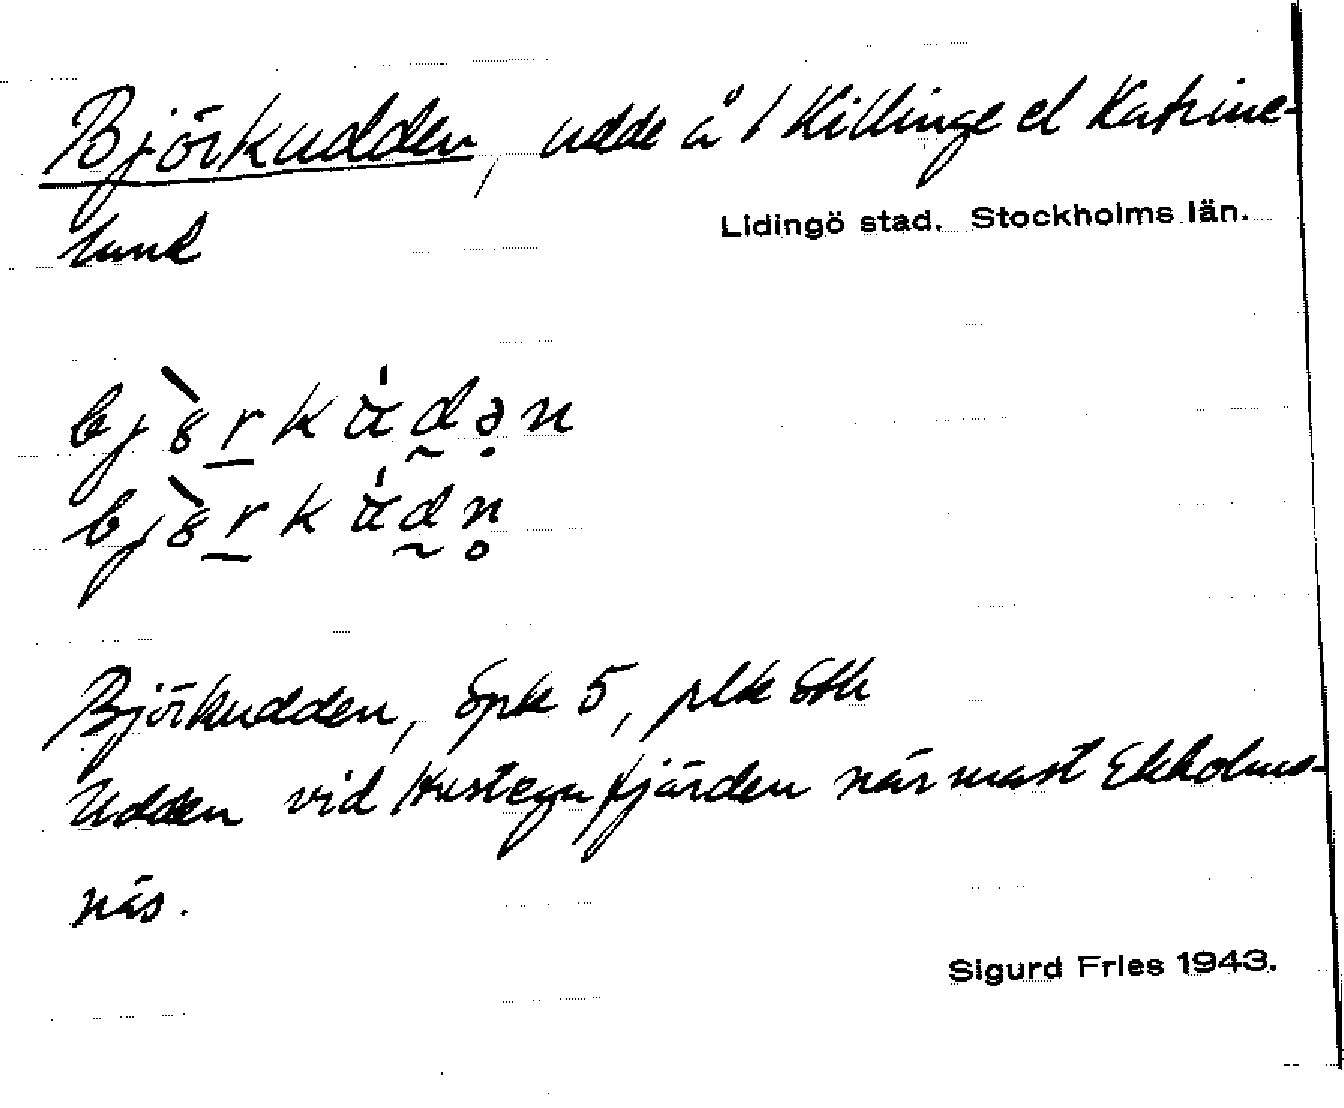 Björkudden, udde å 1 Killinge el Katrine-
lund
Lidingö stad. Stockholms län.
bjö̀rkúdən
bjö̀rkúdn̥
Björkudden, öpk 5, plk Sth
Udden vid Kustegafjärden närmast Ekholms-
näs.
Sigurd Fries 1943.